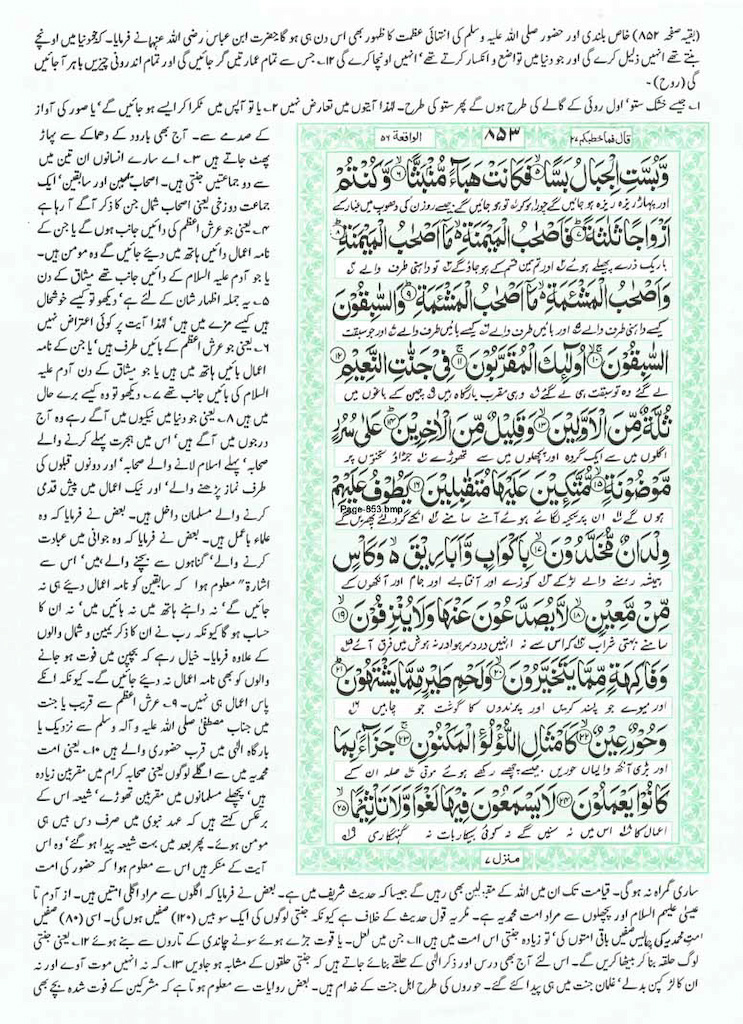 (بقیہ صفحہ ۸۵۲) خاص بلندی اور حضور صلی اللہ علیہ وسلم کی انتہائی عظمت کا ظہور بھی اس دن ہی ہو گا۔ حضرت ابن عباس رضی اللہ عنہا نے فرمایا۔ کہ جو دنیا میں اونچے
بنتے تھے انہیں ذلیل کرے گی اور جو دنیا میں تواضع و انکسار کرتے تھے' انہیں اونچا کرے گی ۱۲۔ جس سے تمام عمارتیں گر جائیں گی اور تمام اندرونی چیزیں باہر آ جائیں
گی (روح)۔
۱۔ جیسے خشک ستو' اول روئی کے گالے کی طرح ہوں گے پھر ستو کی طرح۔ لہذا آیتوں میں تعارض نہیں ۲۔ یا تو آپس میں ٹکرا کر ایسے ہو جائیں گے' یا صور کی آواز
کے صدمے سے۔ آج بھی بارود کے دھماکے سے پہاڑ
پھٹ جاتے ہیں ۳۔ اے سارے انسانوں ان تین میں
سے دو جماعتیں جنتی ہیں۔ اصحاب یمین اور سابقین' ایک
جماعت دوزخی یعنی اصحاب شمال جن کا ذکر آگے آ رہا ہے
۴۔ یعنی جو عرش اعظم کی دائیں جانب ہوں گے یا جن کے
نامہ اعمال دائیں ہاتھ میں دیئے جائیں گے وہ مومن ہیں۔
یا جو آدم علیہ السلام کے دائیں جانب تھے میثاق کے دن
۵۔ یہ جملہ اظہار شان کے لئے ہے' دیکھو تو کیسے خوشحال
ہیں کیسے مزے میں ہیں' لہذا آیت پر کوئی اعتراض نہیں
۶۔ یعنی جو عرش اعظم کے بائیں طرف ہیں' یا جن کے نامہ
اعمال بائیں ہاتھ میں ہیں یا جو میثاق کے دن آدم علیہ
السلام کی بائیں جانب تھے ۷۔ دیکھو تو وہ کیسے برے حال
میں ہیں ۸۔ یعنی جو دنیا میں نیکیوں میں آگے رہے وہ آج
درجوں میں آگے ہیں' اس میں ہجرت پہلے کرنے والے
صحابہ' پہلے اسلام لانے والے صحابہ' اور دونوں قبلوں کی
طرف نماز پڑھنے والے' اور نیک اعمال میں پیش قدمی
کرنے والے مسلمان داخل ہیں۔ بعض نے فرمایا کہ وہ
علماء باعمل ہیں۔ بعض نے فرمایا کہ وہ جوانی میں عبادت
کرنے والے' گناہوں سے بچنے والے' ہیں' اس سے
اشارۃ" معلوم ہوا کہ سابقین کو نامہ اعمال دیئے ہی نہ
جائیں گے' نہ داہنے ہاتھ میں نہ بائیں میں' نہ ان کا
حساب ہو گا کیونکہ رب نے ان کا ذکر یمین و شمال والوں
کے علاوہ فرمایا۔ خیال رہے کہ بچپن میں فوت ہو جانے
والوں کو بھی نامہ اعمال نہ دیئے جائیں گے۔ کیونکہ انکے
پاس اعمال ہی نہیں۔ ۹۔ عرش اعظم سے قریب یا جنت
میں جناب مصطفیٰ صلی اللہ علیہ و آلہ وسلم سے نزدیک یا
بارگاہ الٰہی میں قرب حضوری والے ہیں ۱۰۔ یعنی امت
محمدیہ میں سے اگلے لوگوں یعنی صحابہ کرام میں مقربین زیادہ
ہیں' پچھلے مسلمانوں میں مقربین تھوڑے' شیعہ اس کے
برعکس کہتے ہیں کہ عہد نبوی میں صرف دس بیس ہی
مومن ہوئے۔ پھر بعد میں بہت شیعہ پیدا ہو گئے' وہ اس
آیت کے منکر ہیں اس سے معلوم ہوا کہ حضور کی امت
قال فما خطبکم ۲۷ ۸۵۳ الواقعة ۵۶
وَّبُسَّتِ الْجِبَالُ بَسًّا ۝۵ فَكَانَتْ هَبَآءً مُّنْۢبَثًّا ۝۶ وَّكُنْتُمْ
اور پہاڑ ریزہ ریزہ ہو جائیں گے چورا ہو کر تو ہو جائیں گے جیسے روزن کی دھوپ میں غبار کے
اَزْوَاجًا ثَلٰثَةً ۝۷ فَاَصْحٰبُ الْمَيْمَنَةِ مَاۤ اَصْحٰبُ الْمَيْمَنَةِ ۝۸
باریک ذرے پھیلے ہوئے اور تم تین قسم کے ہو جاؤ گے تو داہنی طرف والے
وَاَصْحٰبُ الْمَشْـَٔمَةِ مَاۤ اَصْحٰبُ الْمَشْـَٔمَةِ ۝۹ وَالسّٰبِقُوْنَ
کیسے داہنی طرف والے اور بائیں طرف والے کیسے بائیں طرف والے اور جو سبقت
السّٰبِقُوْنَ ۝۱۰ اُولٰٓئِكَ الْمُقَرَّبُوْنَ ۝۱۱ فِيْ جَنّٰتِ النَّعِيْمِ ۝۱۲
لے گئے وہ تو سبقت ہی لے گئے وہی مقرب بارگاہ ہیں چین کے باغوں میں
ثُلَّةٌ مِّنَ الْاَوَّلِيْنَ ۝۱۳ وَقَلِيْلٌ مِّنَ الْاٰخِرِيْنَ ۝۱۴ عَلٰى سُرُرٍ
اگلوں میں سے ایک گروہ اور پچھلوں میں سے تھوڑے جڑاؤ تختوں پر
مَّوْضُوْنَةٍ ۝۱۵ مُّتَّكِـِٕيْنَ عَلَيْهَا مُتَقٰبِلِيْنَ ۝۱۶ يَطُوْفُ عَلَيْهِمْ
Page-853.bmp
ہوں گے ان پر تکیہ لگائے ہوئے آمنے سامنے انکے گرد لئے پھریں گے
وِلْدَانٌ مُّخَلَّدُوْنَ ۝۱۷ بِاَكْوَابٍ وَّاَبَارِيْقَ وَكَاْسٍ
ہمیشہ رہنے والے لڑکے کوزے اور آفتابے اور جام اور آنکھوں کے
مِّنْ مَّعِيْنٍ ۝۱۸ لَّا يُصَدَّعُوْنَ عَنْهَا وَلَا يُنْزِفُوْنَ ۝۱۹
سامنے بہتی شراب کہ اس سے نہ انہیں درد سر ہو اور نہ ہوش میں فرق آئے
وَفَاكِهَةٍ مِّمَّا يَتَخَيَّرُوْنَ ۝۲۰ وَلَحْمِ طَيْرٍ مِّمَّا يَشْتَهُوْنَ ۝۲۱
اور میوے جو پسند کریں اور پرندوں کا گوشت جو چاہیں
وَحُوْرٌ عِيْنٌ ۝۲۲ كَاَمْثَالِ اللُّؤْلُؤِ الْمَكْنُوْنِ ۝۲۳ جَزَآءًۢ بِمَا
اور بڑی آنکھ والیاں حوریں جیسے چھپے رکھے ہوئے موتی صلہ ان کے
كَانُوْا يَعْمَلُوْنَ ۝۲۴ لَا يَسْمَعُوْنَ فِيْهَا لَغْوًا وَّلَا تَاْثِيْمًا ۝۲۵
اعمال کا اس میں نہ سنیں گے نہ کوئی بیکار بات نہ گنہگاری
منزل ۷
ساری گمراہ نہ ہو گی۔ قیامت تک ان میں اللہ کے مقبولین بھی رہیں گے جیسا کہ حدیث شریف میں ہے۔ بعض نے فرمایا کہ اگلوں سے مراد اگلی امتیں ہیں۔ از آدم تا
عیسیٰ علیہم السلام اور پچھلوں سے مراد امت محمدیہ ہے۔ مگر یہ قول حدیث کے خلاف ہے کیونکہ جنتی لوگوں کی ایک سو بیس (۱۲۰) صفیں ہوں گی۔ اسی (۸۰) صفیں
امت محمدیہ کی چالیس صفیں باقی امتوں کی' تو زیادہ جنتی اس امت میں ہیں ۱۱۔ جن میں لعل۔ یا قوت جڑے ہوئے سونے چاندی کے تاروں سے بنے ہوئے ۱۲۔ یعنی جنتی
لوگ حلقہ بنا کر بیٹھا کریں گے۔ اس لئے آج بھی درس اور ذکر الٰہی کے حلقے بنائے جاتے ہیں کہ جنتی حلقوں کے مشابہ ہو جاویں ۱۳۔ کہ نہ انہیں موت آوے اور نہ
ان کا لڑکپن بدلے' غلمان جنت میں ہی پیدا کئے گئے۔ حوروں کی طرح اہل جنت کے خدام ہیں۔ بعض روایات سے معلوم ہوتا ہے کہ مشرکین کے فوت شدہ بچے بھی